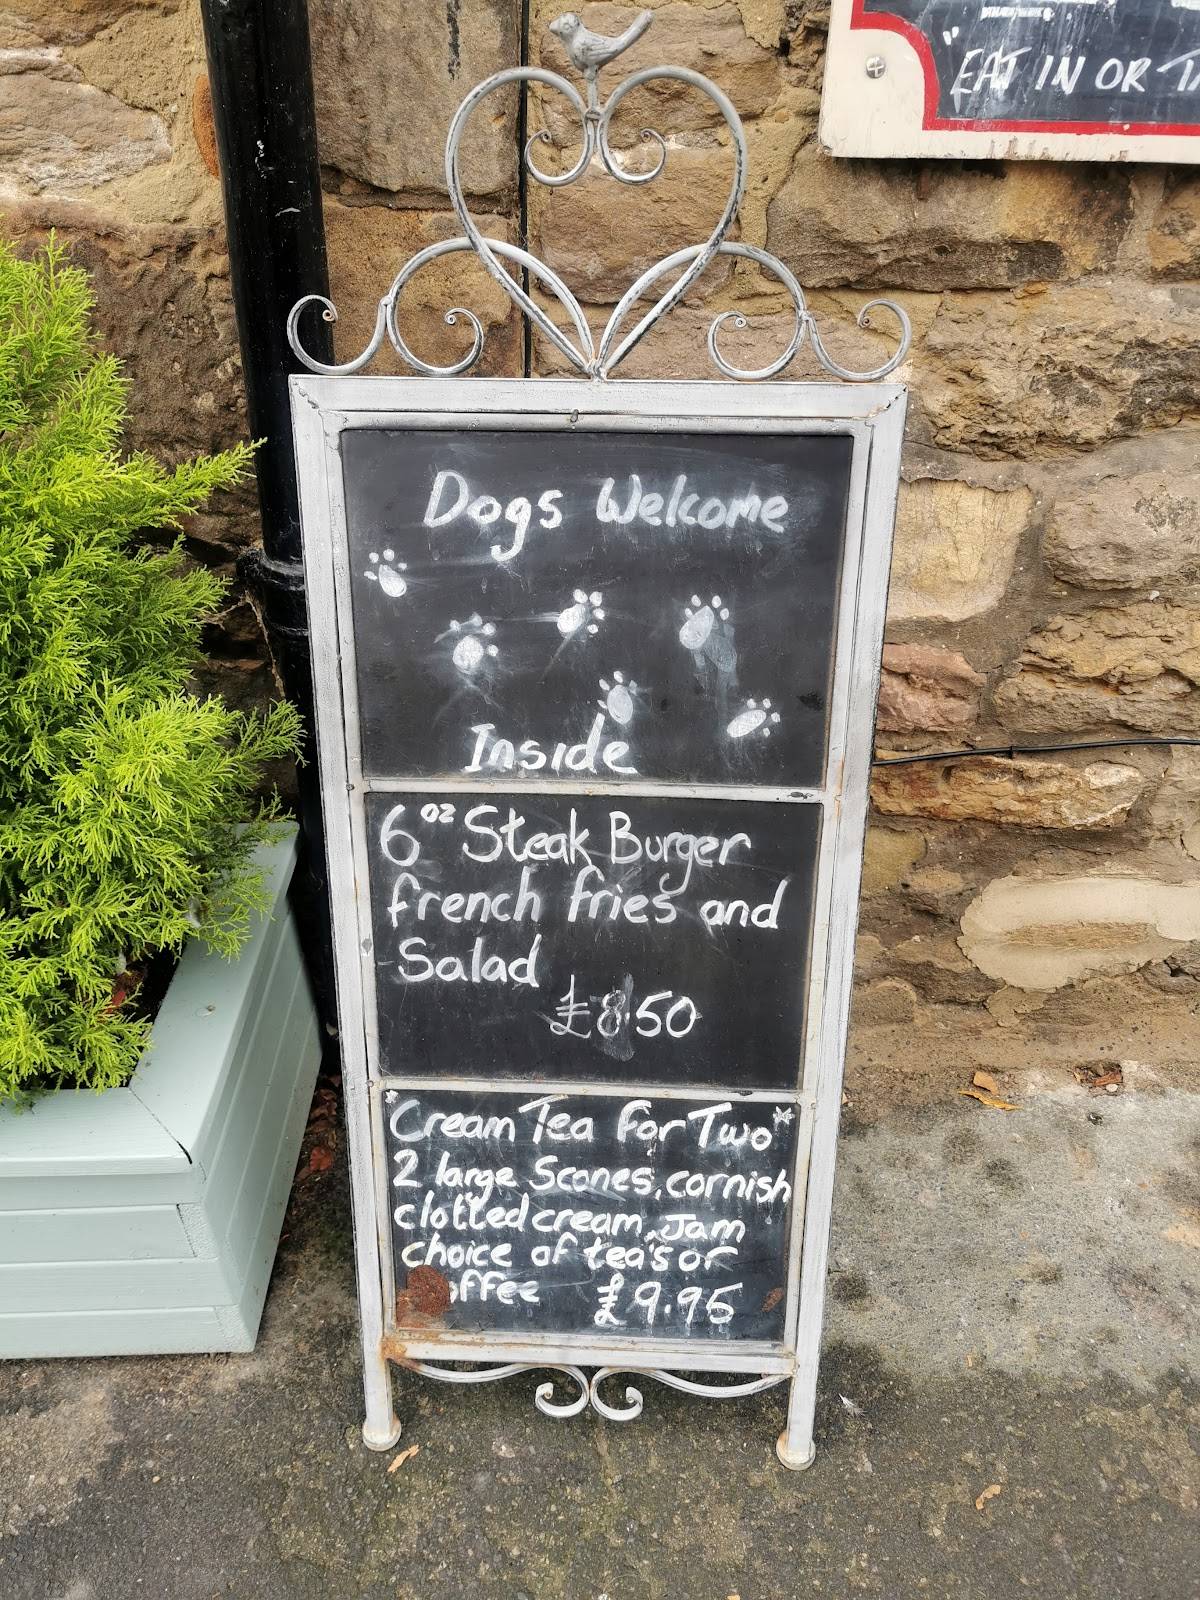 "EAT IN OR
Dogs Welcome
Inside
6oz Steak Burger
french fries and
Salad
£8.50
*Cream Tea for Two*
2 large Scones, cornish
clotted cream, Jam
choice of tea's or
offee £9.95